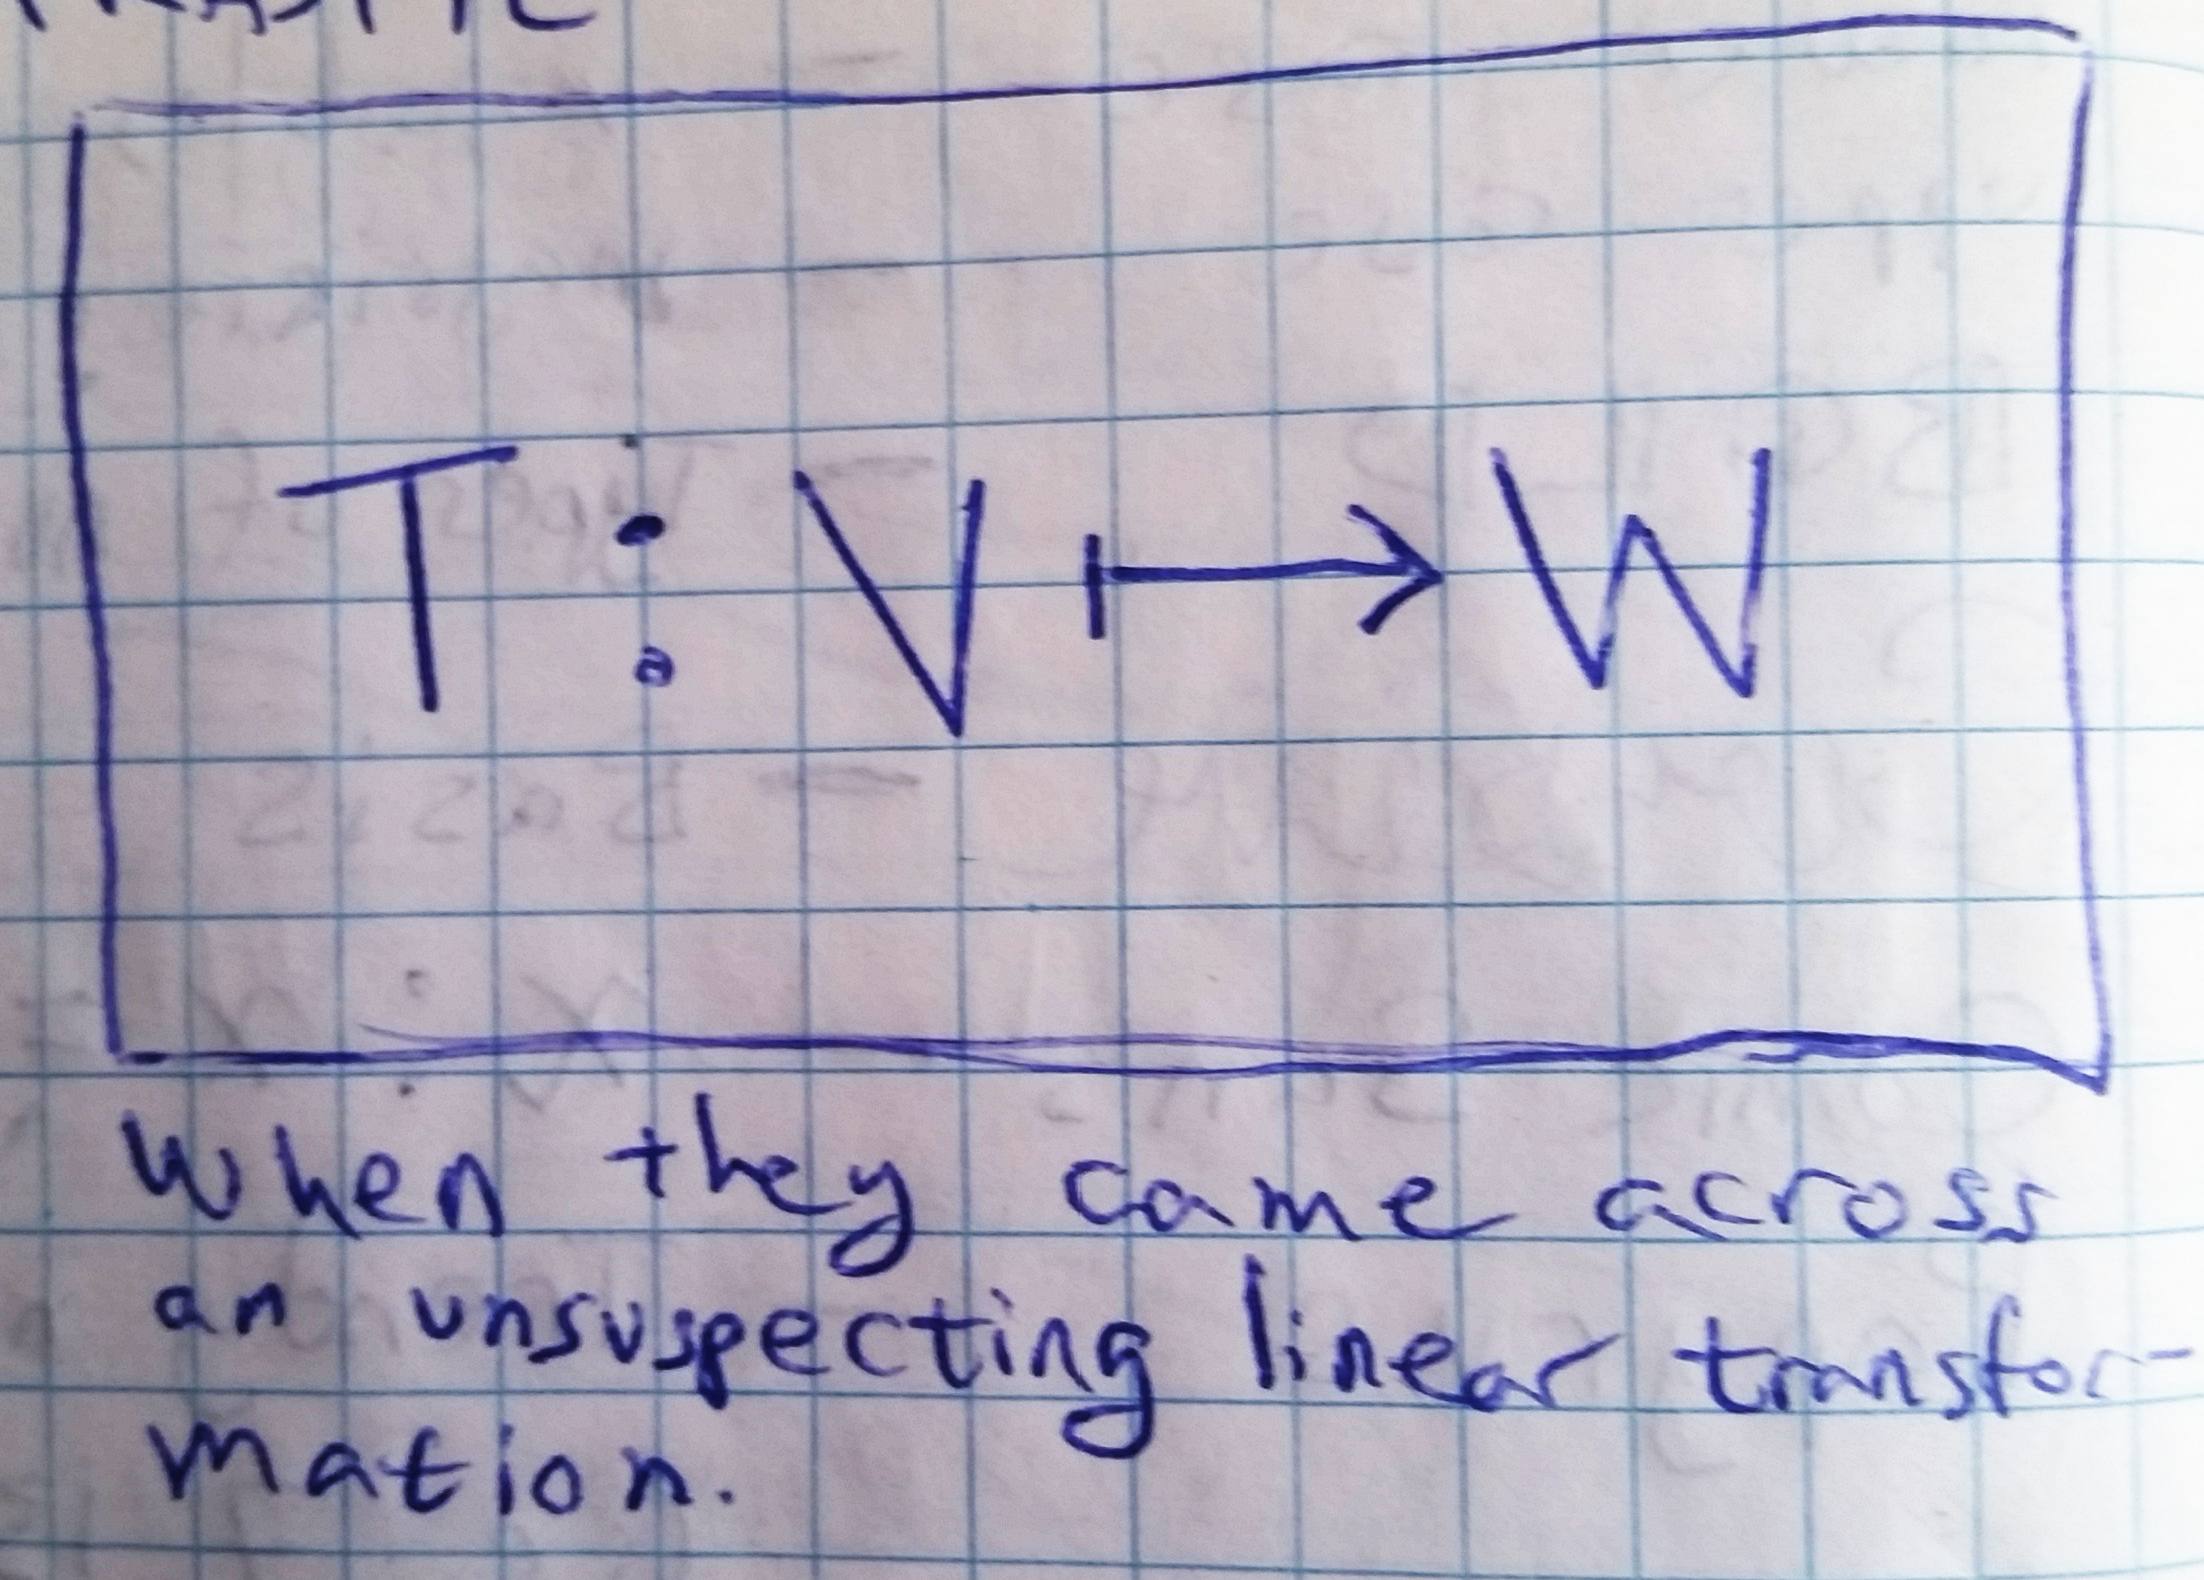 T : V ↦ W
When they came across
an unsuspecting linear transfor-
mation.